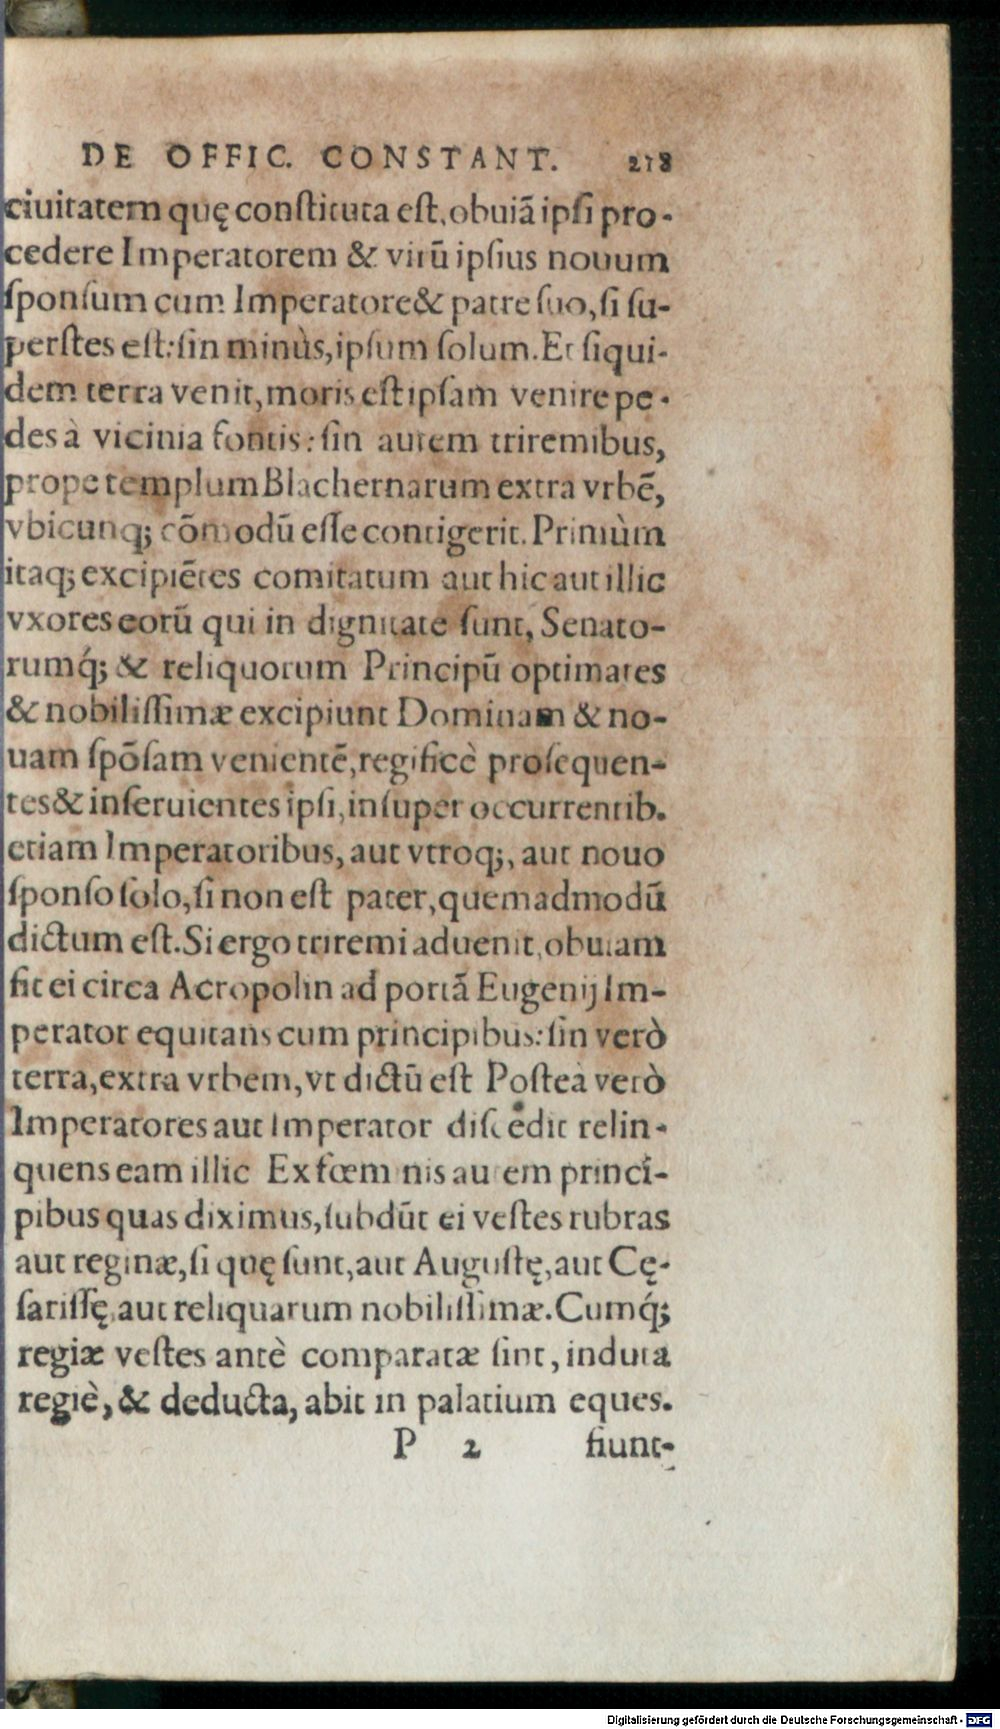 DE OFFIC. CONSTANT. 218
ciuitatem quę constituta est, obuiã ipsi pro-
cedere Imperatorem & virũ ipsius nouum
sponsum cum Imperatore & patre suo, si su-
perstes est: sin minùs, ipsum solum. Et siqui-
dem terra venit, moris est ipsam venire pe-
des à vicinia fontis: sin autem triremibus,
prope templum Blachernarum extra vrbẽ,
vbicunq; cõmodũ esse contigerit. Primùm
itaq; excipiẽtes comitatum aut hic aut illic
vxores eorũ qui in dignitate sunt, Senato-
rumq́; & reliquorum Principũ optimates
& nobilissimæ excipiunt Dominam & no-
uam spõsam venientẽ, regificè prosequen-
tes & inseruientes ipsi, insuper occurrentib.
etiam Imperatoribus, aut vtroq;, aut nouo
sponso solo, si non est pater, quemadmodũ
dictum est. Si ergo triremi aduenit, obuiam
fit ei circa Acropolin ad portã Eugenij Im-
perator equitans cum principibus: sin verò
terra, extra vrbem, vt dictũ est Postea verò
Imperatores aut Imperator discedit relin-
quens eam illic Ex fœminis autem princi-
pibus quas diximus, subdũt ei vestes rubras
aut reginæ, si quę sunt, aut Augustę, aut Cę-
sarissę, aut reliquarum nobilissimæ. Cumq́;
regiæ vestes antè comparatæ sint, induta
regiè, & deducta, abit in palatium eques.
P 2 fiunt-
Digitalisierung gefördert durch die Deutsche Forschungsgemeinschaft - DFG